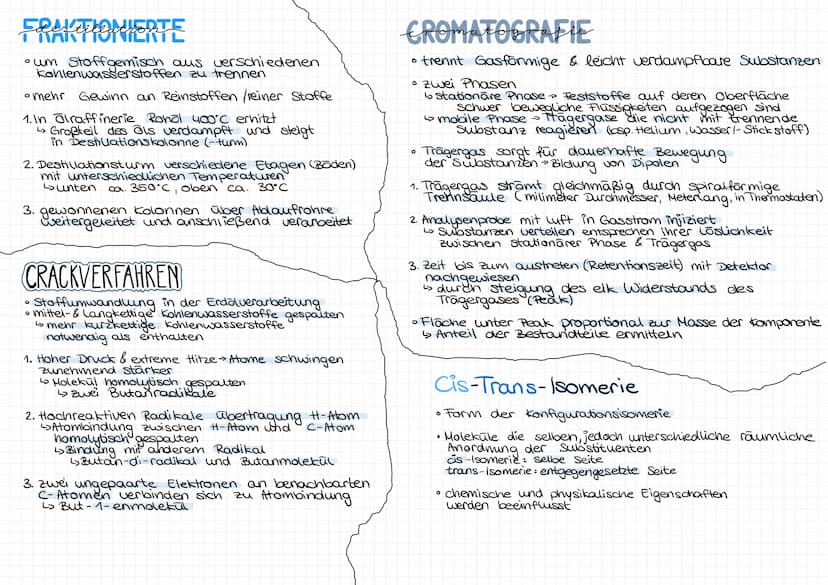 FRAKTIONIERTE
destillation
• um Stoffgemisch aus verschiedenen
Kohlenwasserstoffen zu trennen
• mehr Gewinn an Reinstoffen /reiner Stoffe
1. In Ölraffinerie Rohöl 400°C erhitzt
↳ Großteil des Öls verdampft und steigt
in Destillationskolonne (-turm)
2. Destillationsturm verschiedene Etagen (Böden)
mit unterschiedlichen Temperaturen
↳ unten ca. 350°C, oben ca. 30°C
3. gewonnenen Kolonnen über Ablaufrohre
weitergeleitet und anschließend verarbeitet
CRACKVERFAHREN
• Stoffumwandlung in der Erdölverarbeitung
• mittel- & langkettige Kohlenwasserstoffe gespalten
↳ mehr kurzkettige Kohlenwasserstoffe
notwendig als enthalten
1. Hoher Druck & extreme Hitze → Atome schwingen
zunehmend stärker
↳ Molekül homolytisch gespalten
↳ zwei Butanradikale
2. Hochreaktiven Radikale Übertragung H-Atom
↳ Atombindung zwischen H-Atom und C-Atom
homolytisch gespalten
↳ Bindung mit anderem Radikal
↳ Butan-di-radikal und Butanmolekül
3. zwei ungepaarte Elektronen an benachbarten
C-Atomen verbinden sich zu Atombindung
↳ But-1-enmolekül
CROMATOGRAFIE
cromatografie
• trennt Gasförmige & leicht verdampfbare Substanzen
• zwei Phasen
↳ stationäre Phase → Feststoffe auf deren Oberfläche
schwer bewegliche Flüssigkeiten aufgezogen sind
↳ mobile Phase → Trägergase die nicht mit trennende
Substanz reagieren (bsp. Helium, Wasser/- Stickstoff)
• Trägergas sorgt für dauerhafte Bewegung
der Substanzen → Bildung von Dipolen
1. Trägergas strömt gleichmäßig durch spiralförmige
Trehnsäule (milimeter Durchmesser, Meterlang, in Thermostaten)
2. Analysenprobe mit Luft in Gasstrom injiziert
↳ Substanzen verteilen entsprechen ihrer Löslichkeit
zwischen stationärer Phase & Trägergas
3. Zeit bis zum austreten (Retentionszeit) mit Detektor
nachgewiesen
↳ durch steigung des elk Widerstands des
Trägergases (Peak)
• Fläche unter Peak proportional zur Masse der Komponente
↳ Anteil der Bestandteile ermitteln
Cis-Trans-Isomerie
• Form der Konfigurationsisomerie
• Moleküle die selben, jedoch unterschiedliche räumliche
Anordnung der Substituenten
cis-Isomerie: selbe Seite
trans-Isomerie: entgegengesetzte Seite
• chemische und physikalische Eigenschaften
werden beeinflusst